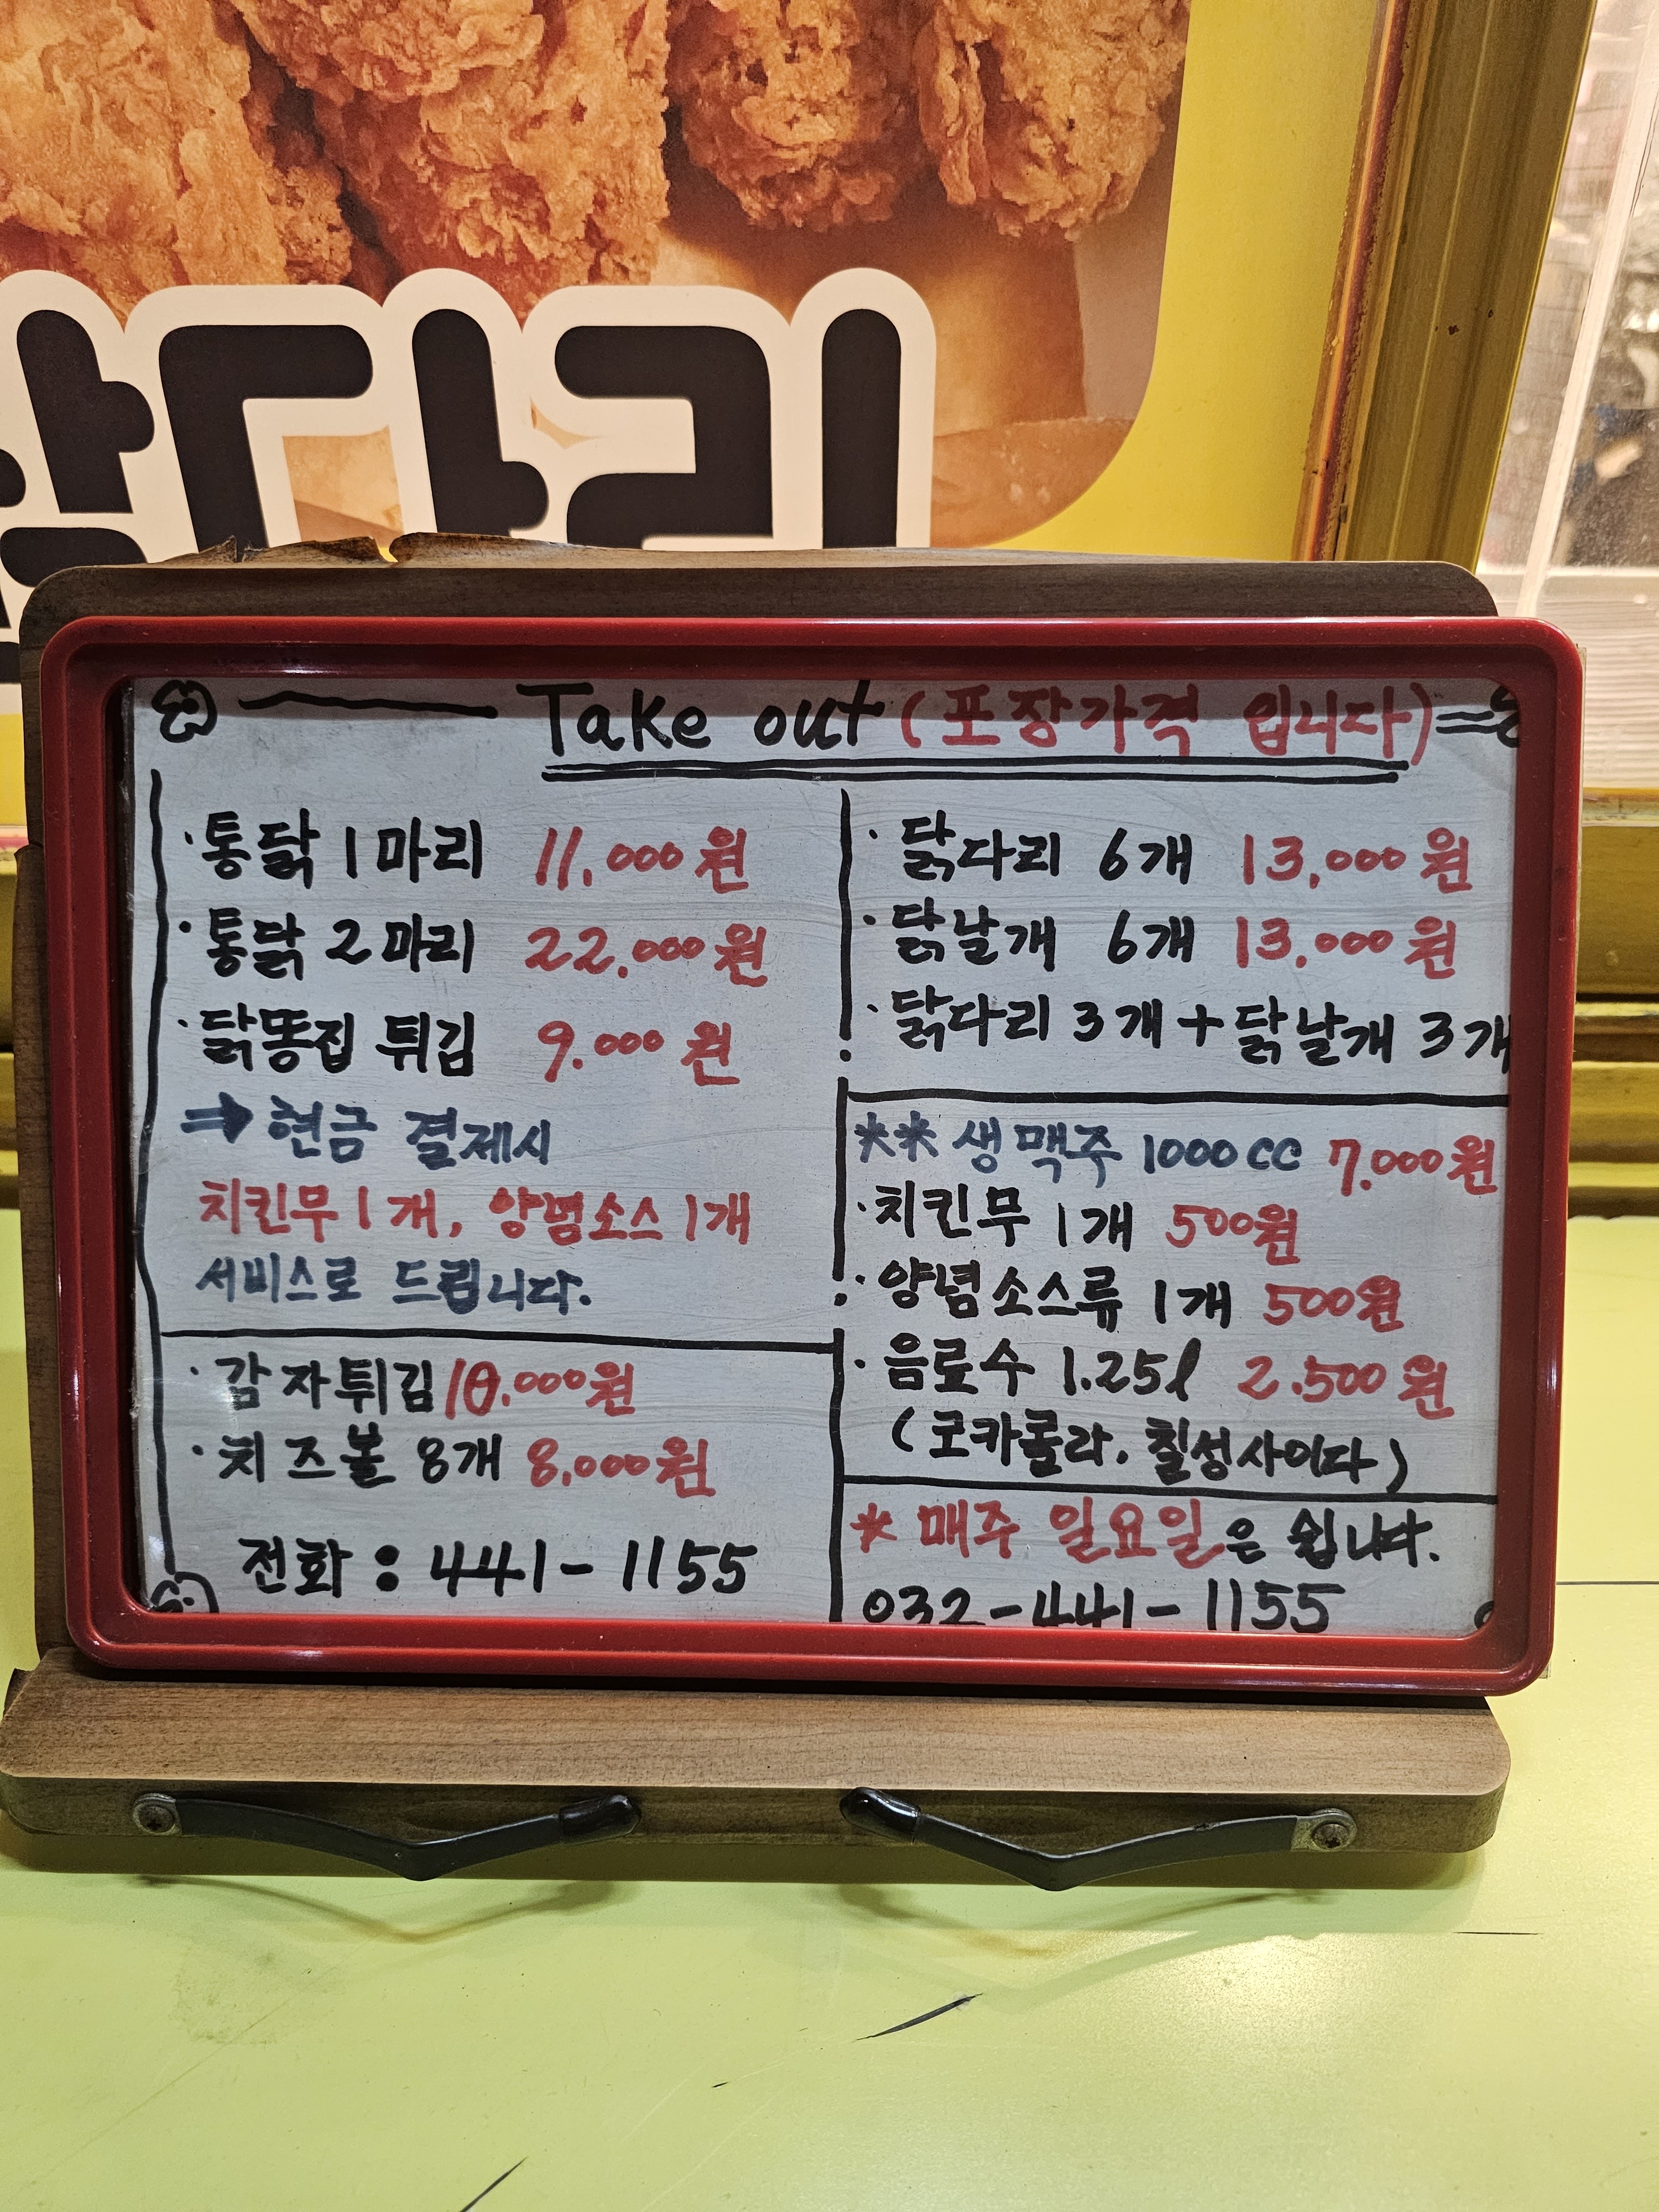 닭다리
Take out (포장가격 입니다)
· 통닭 1마리 11,000원
· 통닭 2마리 22,000원
· 닭똥집 튀김 9.000원
⇒ 현금 결제시
치킨무 1개, 양념소스 1개
서비스로 드립니다.
· 감자튀김 10.000원
· 치즈볼 8개 8,000원
전화 : 441-1155
· 닭다리 6개 13,000원
· 닭날개 6개 13,000원
· 닭다리 3개 + 닭날개 3개
** 생맥주 1000cc 7.000원
· 치킨무 1개 500원
· 양념소스류 1개 500원
· 음료수 1.25l 2.500원
(코카콜라. 칠성사이다)
* 매주 일요일은 쉽니다.
032-441-1155